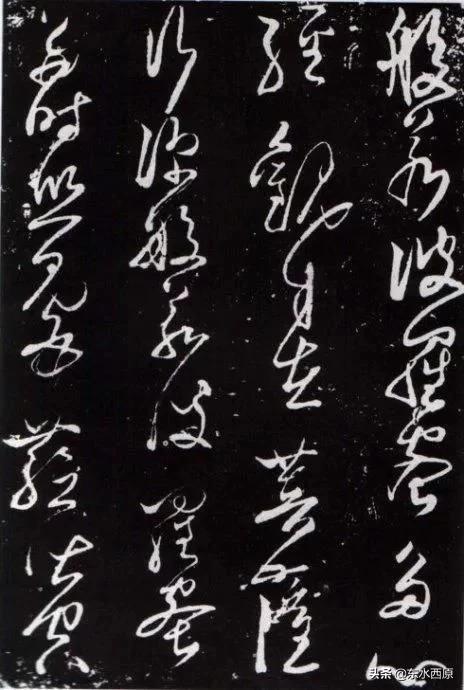 般若波羅蜜多心
經觀自在菩薩
行深般若波羅蜜
多時照見五蘊皆空
头条 @东水西原